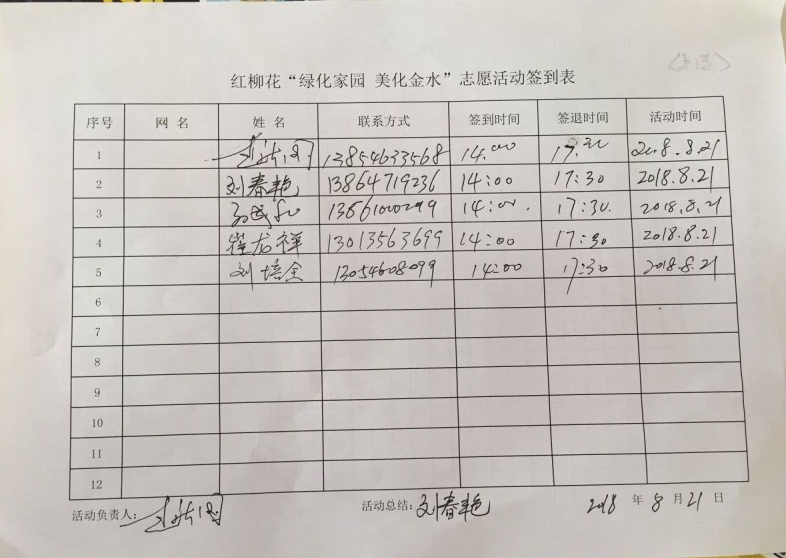 红柳花“绿化家园 美化金水”志愿活动签到表
序号 网 名 姓 名 联系方式 签到时间 签退时间 活动时间
1 13854633568 14:00 17:30 2018.8.21
2 刘春艳 13864719236 14:00 17:30 2018.8.21
3 13861000299 14:00. 17:30. 2018.8.21
4 崔龙祥 13013563699 14:00 17:30 2018.8.21
5 刘培全 13054608099 14:00 17:30 2018.8.21
6
7
8
9
10
11
12
活动负责人: 活动总结: 刘春艳 2018 年 8 月 21 日